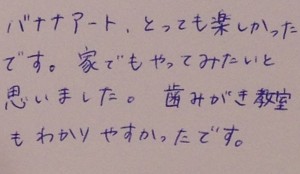 バナナアート、とっても楽しかった
です。家でもやってみたいと
思いました。歯みがき教室
もわかりやすかったです。